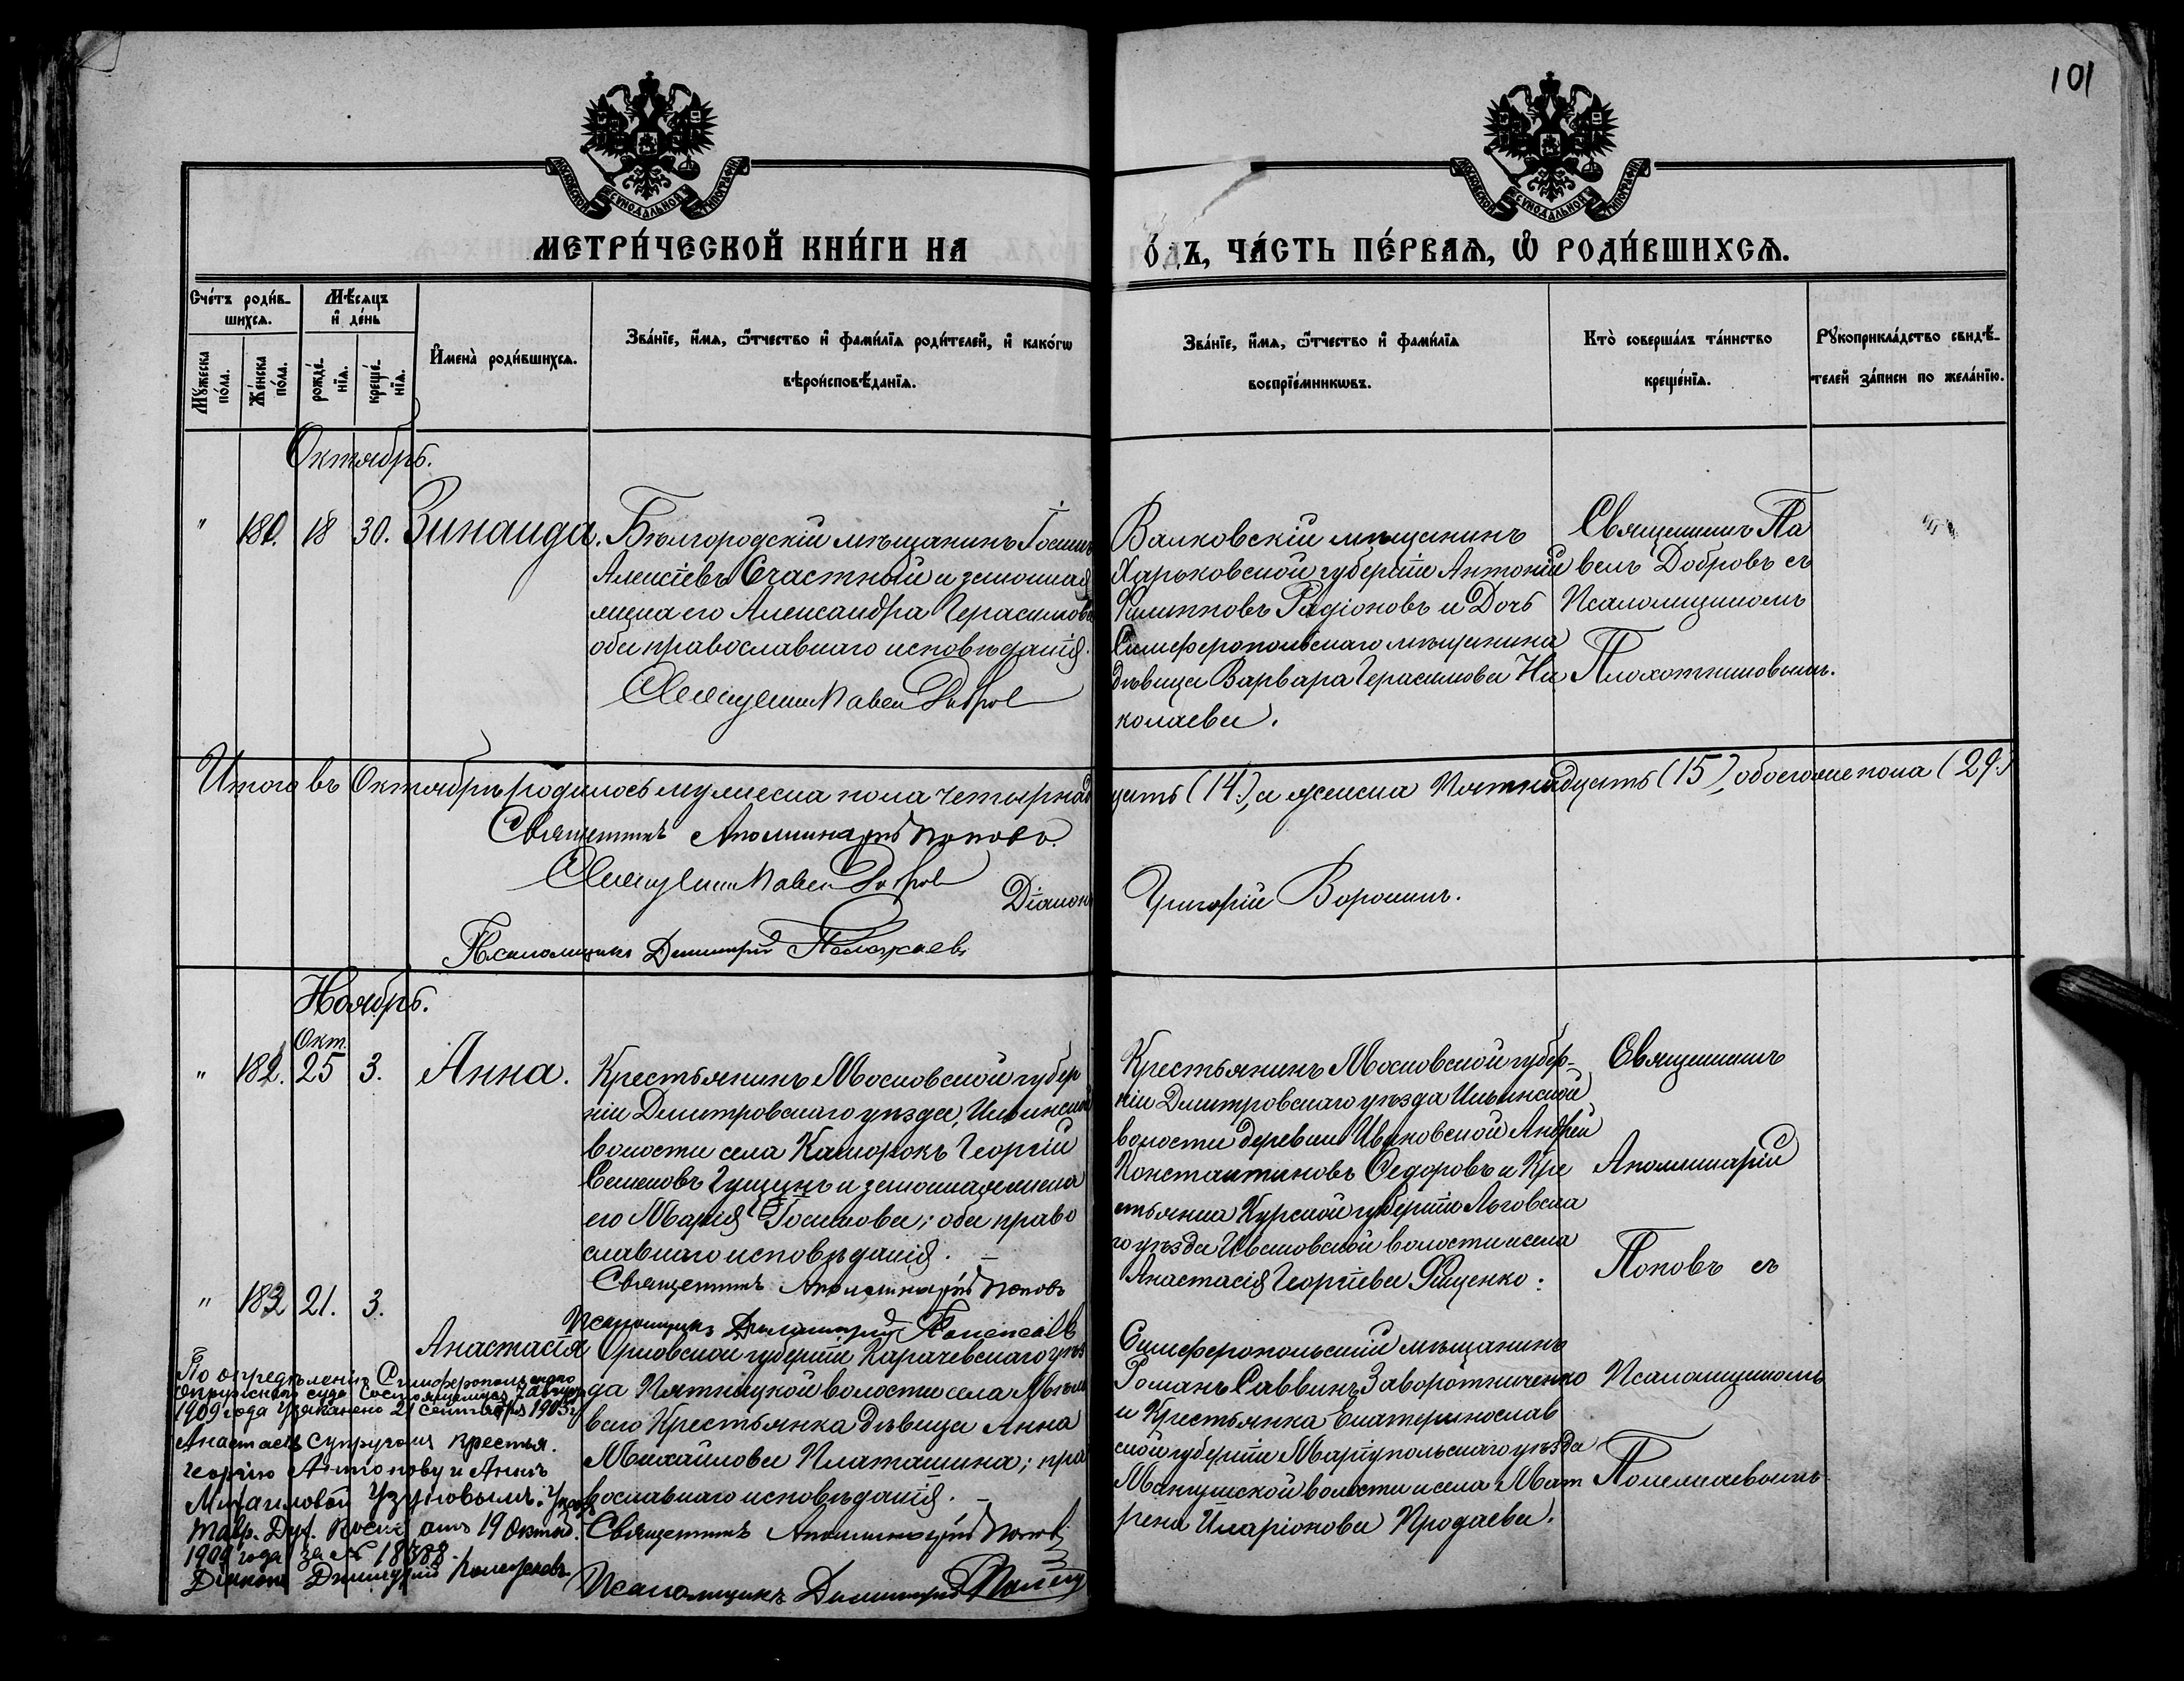 101
МОСКОВСКОЙ СѴНОДАЛЬНОЙ ТИПОГРАФІИ
МОСКОВСКОЙ СѴНОДАЛЬНОЙ ТИПОГРАФІИ
МЕТРИ́ЧЕСКОЙ КНИ́ГИ НА
О́ДЪ, ЧА́СТЬ ПЕ́РВАѦ, Ѡ РОДИ́ВШИХСѦ.
Сче́тъ роди́в-
шихсѧ.
Мꙋ́жеска по́ла.
Же́нска по́ла.
Мѣ́сяцъ и де́нь
рожде́-нїѧ.
креще́-нїѧ.
Имена̀ роди́вшихсѧ.
Зва́нїе, и́мѧ, ѻ́тчество и фами́лїѧ роди́телей, и како́гѡ
вѣроисповѣ́данїѧ.
Зва́нїе, и́мѧ, ѻ́тчество и фами́лїѧ
воспрїе́мникѡвъ.
Кто̀ соверша́лъ та́инство
креще́нїѧ.
Рꙋкоприкла́дство свидѣ́-
телей за́писи по жела́нїю.
Октябрь.
" 180. 18 30. Зинаида.
Бѣлгородскій мѣщанинъ
Алексіевъ Счастный и законная
жена его Александра Герасимова
оба православнаго исповѣданія.
Священникъ Павелъ Добровъ
Валковскій мѣщанинъ
Харьковской губерніи Антоній
Филипповъ Радіоновъ и Дочь
Симферопольскаго мѣщанина
дѣвица Варвара Герасимова Ни
колаева.
Священникъ Па
велъ Добровъ съ
Псаломщикомъ
Плохотниковымъ.
Итого въ Октябрѣ родилось мужеска пола четырнад
цать (14), а женска Пятнадцать (15), обоего же пола (29.)
Священникъ Аполлинарій Поповъ.
Священникъ Павелъ Добровъ
Діаконъ
Григорій Воронинъ.
Псаломщикъ Димитрій Полежаевъ
Ноябрь.
Окт.
" 182. 25 3. Анна.
Крестьянинъ Московской губер
ніи Дмитровскаго уѣзда, Ильинской
волости села Георгій
Семеновъ Гущинъ и законная жена
его Марія; оба право
славнаго исповѣданія.
Священникъ Аполлинарій Поповъ
Псаломщикъ Димитрій Полежаевъ
Крестьянинъ Московской губер-
ніи Дмитровскаго уѣзда Ильинской
волости деревни Ивановской Андрей
Константиновъ Ѳедоровъ и Кре
стьянка Курской губерніи Льговска
го уѣзда Ивановской волости и села
Анастасія Георгіева
Священникъ
Аполлинарій
Поповъ съ
Псаломщикомъ
Полежаевымъ.
" 183 21. 3.
Анастасія
Орловской губерніи Карачевскаго уѣз
да Пятницкой волости села
Крестьянка дѣвица Анна
Михайлова Платашина; пра
вославнаго исповѣданія.
Священникъ Аполлинарій Поповъ
Псаломщикъ Димитрій
Симферопольскій мѣщанинъ
Романъ Саввинъ Заворотниченко
и Крестьянка Екатеринослав
ской губерніи Маріупольскаго уѣзда
Мангушской волости и села Мат
рена Иларіонова Продаева.
По опредѣленію Симферопольскаго
окружнаго суда состоявшемуся 7 августа
1909 года узаконено 21 сентября 1905 г.
Анастасія супругомъ крестья.
Георгію Антонову и Аннѣ
Михаиловой
Тавр. Дух. Конс. отъ 19 Октяб.
1909 года за № 18388.
Діаконъ Димитрій Полежаевъ